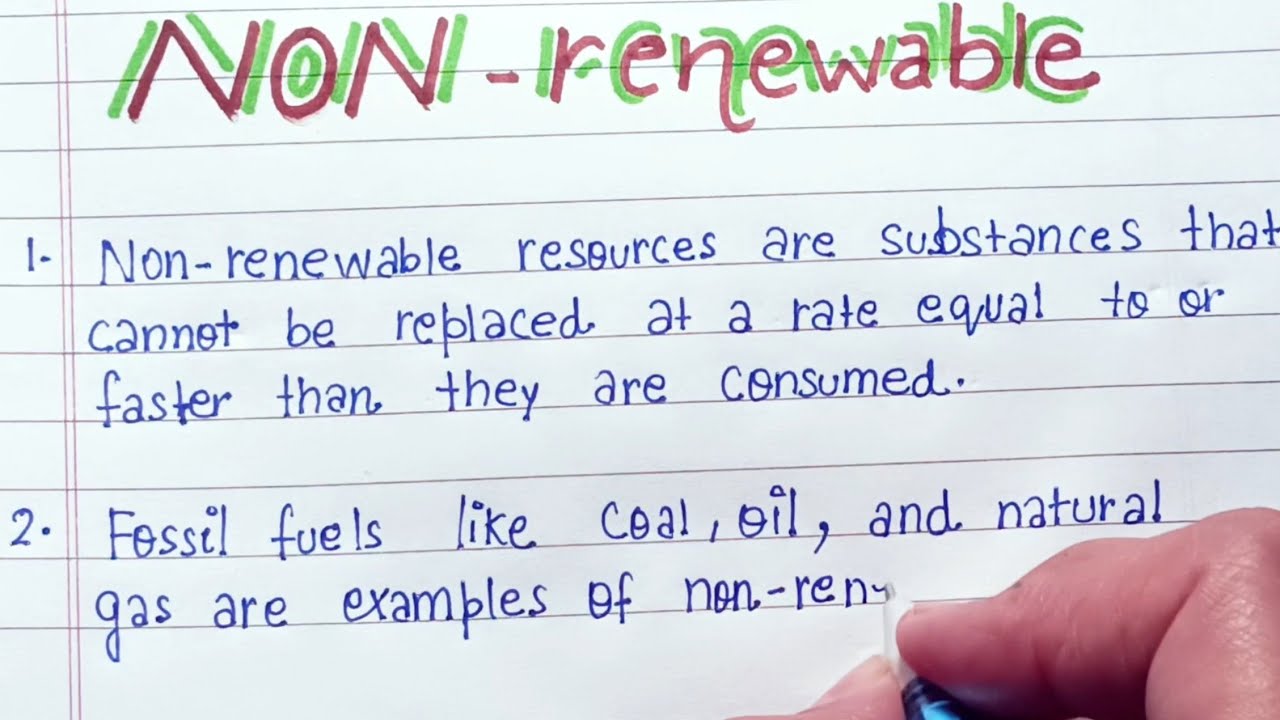 NON-renewable
1. Non-renewable resources are substances that
cannot be replaced at a rate equal to or
faster than they are consumed.
2. Fossil fuels like coal, oil, and natural
gas are examples of non-ren